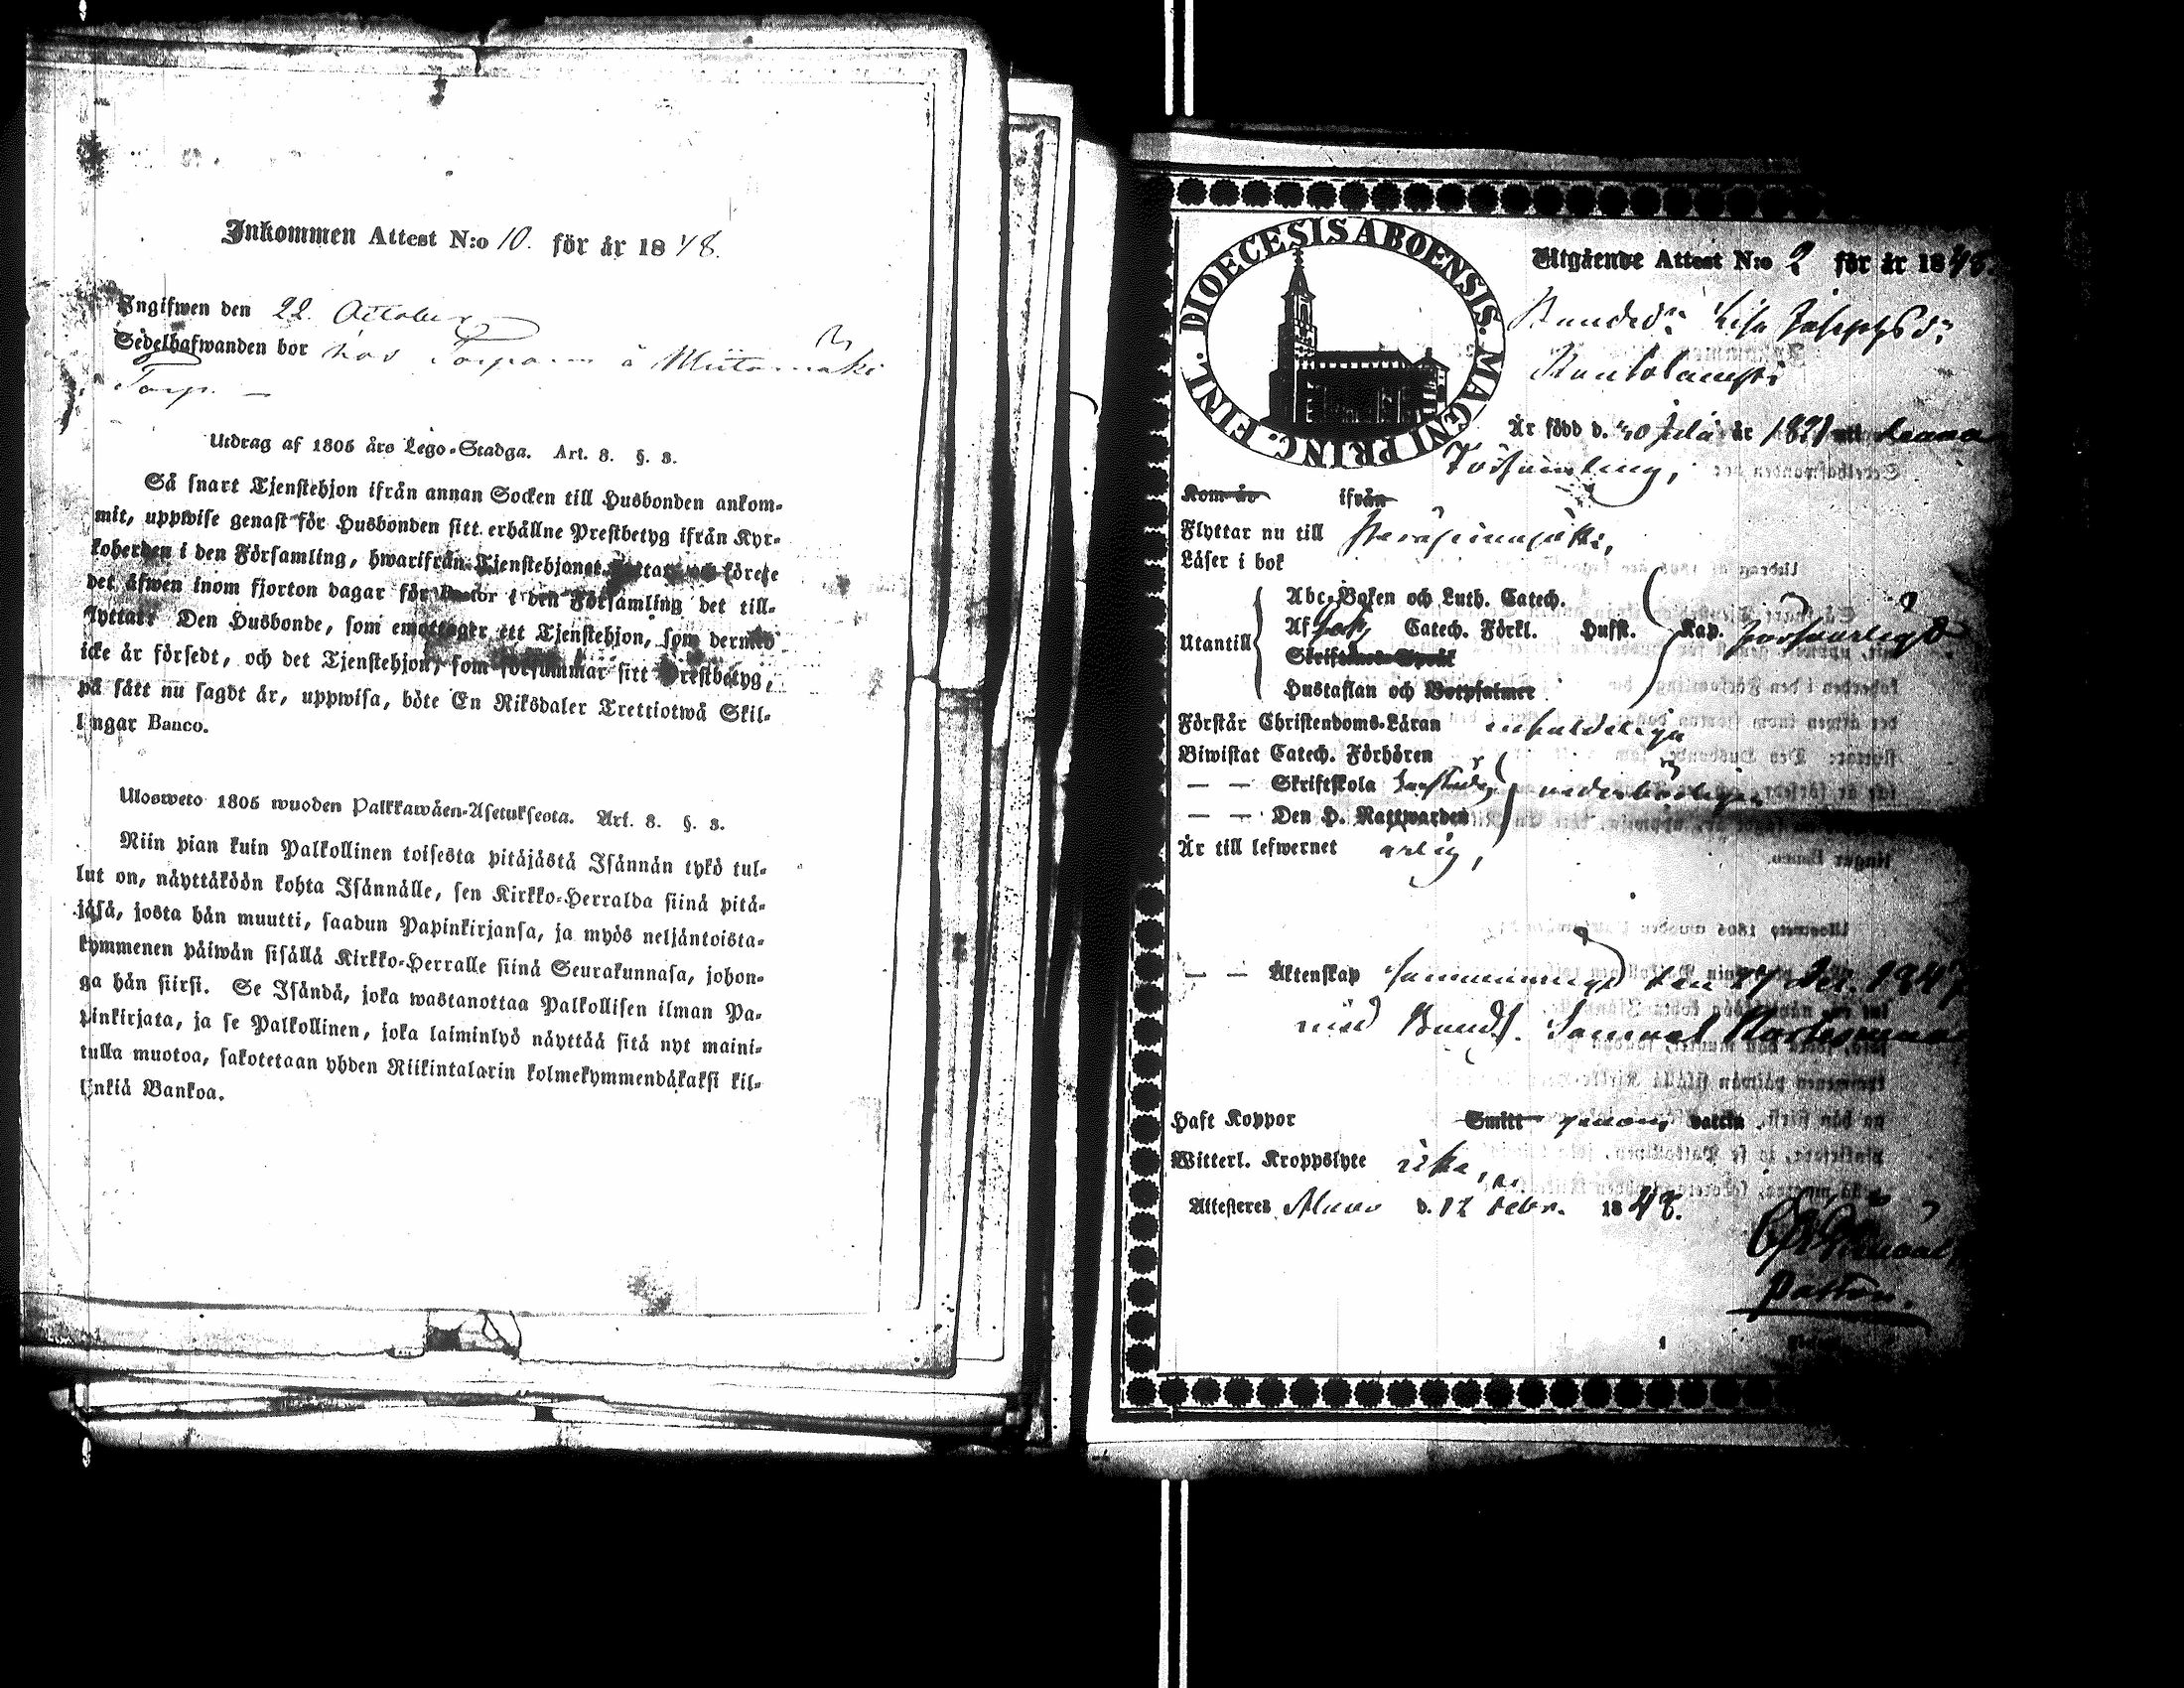 Inkommen Attest N:o 10. för år 1848.
Ingifwen den 22. October
Sedelhafwanden bor hos Torparen å Miitamäki
Torp. —
Utdrag af 1805 års Lego-Stadga. Art. 8. §. 3.
Så snart Tjenstehjon ifrån annan Socken till Husbonden ankom-
mit, uppwise genast för Husbonden sitt erhållne Prestbetyg ifrån Kyr-
koherden i den Församling, hwarifrån Tjenstehjonet flyttat och förete
det äfwen inom fjorton dagar för Pastor i den Församling det till-
flyttar: Den Husbonde, som emottager ett Tjenstehjon, som dermed
icke är försedt, och det Tjenstehjon, som försummar sitt Prestbetyg,
på sätt nu sagdt är, uppwisa, böte En Riksdaler Trettiotwå Skil-
lingar Banco.
Ulosweto 1805 wuoden Palkkawäen-Asetuksesta. Art. 8. §. 3.
Niin pian kuin Palkollinen toisesta pitäjästä Isännän tykö tul-
lut on, näyttäköön kohta Isännälle, sen Kirkko-Herralda siinä pitä-
jäsä, josta hän muutti, saadun Papinkirjansa, ja myös neljäntoista-
kymmenen päiwän sisällä Kirkko-Herralle siinä Seurakunnasa, johon-
ga hän siirsi. Se Isändä, joka wastanottaa Palkollisen ilman Pa-
pinkirjata, ja se Palkollinen, joka laiminlyö näyttää sitä nyt maini-
tulla muotoa, sakotetaan yhden Riikintalarin kolmekymmendäkaksi kil-
linkiä Bankoa.
DIOECESIS ABOENSIS. MAGNI PRINC. FINL.
Utgående Attest N:o 2 för år 1848.
Bonded:r Lisa Josephsd:r
Rantolamspi
Är född d. 30 Juli år 1821 uti
Församling,
Kom år ifrån
Flyttar nu till
Läser i bok
Utantill
Abc-Boken och Luth. Catech.
Af Catech. Förkl. Husst. Kap. försvarligt
Skriftenes Språk
Hustaflan och Botpsalmer
Förstår Christendoms-Läran enfaldeligen
Biwistat Catech. Förhören
— — Skriftskola
— — Den H. Nattwarden
vederbörligen
Är till lefwernet ärlig,
— — Äktenskap sammanvigd den 27 Dec. 1847
med Bonds. Samuel
Haft Koppor Smitt genom vaccin
Witterl. Kroppslyte icke,
Attesteres Alavo d. 12 Febr. 1848.
Pastor.
1